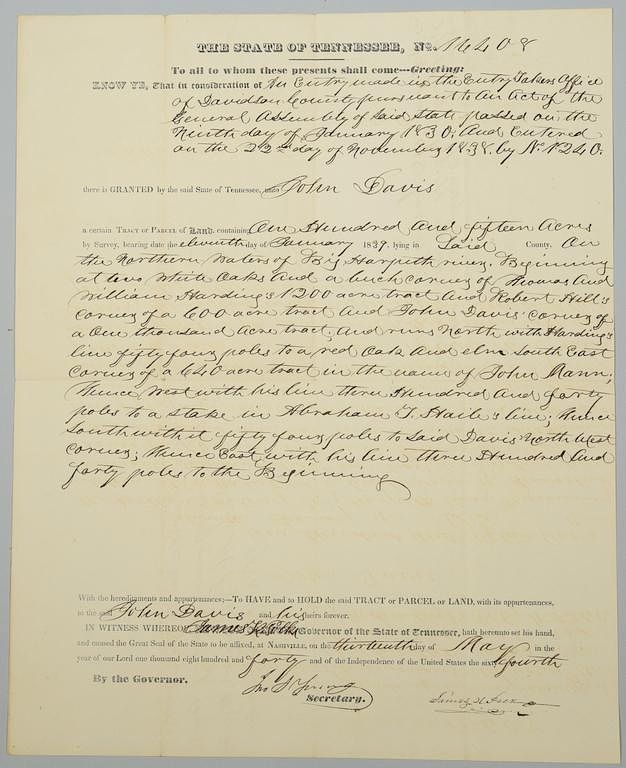 THE STATE OF TENNESSEE, No. 16408
To all to whom these presents shall come---Greeting:
KNOW YE, That in consideration of An Entry made in the Entry Takers Office
of Davidson County pursuant to An Act of the
General Assembly of said State passed on the
Ninth day of January 1830. And Entered
on the 22nd day of November 1838. by No. 1240.
there is GRANTED by the said State of Tennessee, unto John Davis
a certain TRACT or PARCEL of Land, containing One Hundred And fifteen Acres
by Survey, bearing date the eleventh day of January 1839, lying in Said County. On
the Northern Waters of Big Harpeth river; Beginning
at two White Oaks And a corner of Thomas And
William Harding's 1200 acre tract And Robert Hill's
corner of a 600 acre tract And John Davis' corner of
a One thousand Acre tract; And runs North with Harding's
line fifty four poles to a red Oak And elm South East
corner of a 640 acre tract in the name of John Mann;
thence West with his line three Hundred And forty
poles to a stake in Abraham line; thence
South with it fifty four poles to said Davis' North West
corner; thence East with his line three Hundred And
forty poles to the Beginning
With the hereditaments and appurtenances;--To HAVE and to HOLD the said TRACT or PARCEL or LAND, with its appurtenances,
to the said John Davis and his heirs forever.
IN WITNESS WHEREOF James K. Polk Governor of the State of Tennessee, hath hereunto set his hand,
and caused the Great Seal of the State to be affixed, at NASHVILLE, on the thirteenth day of May in the
year of our Lord one thousand eight hundred and forty and of the Independence of the United States the sixty fourth
By the Governor. James K. Polk
Jno. S. Young
Secretary.